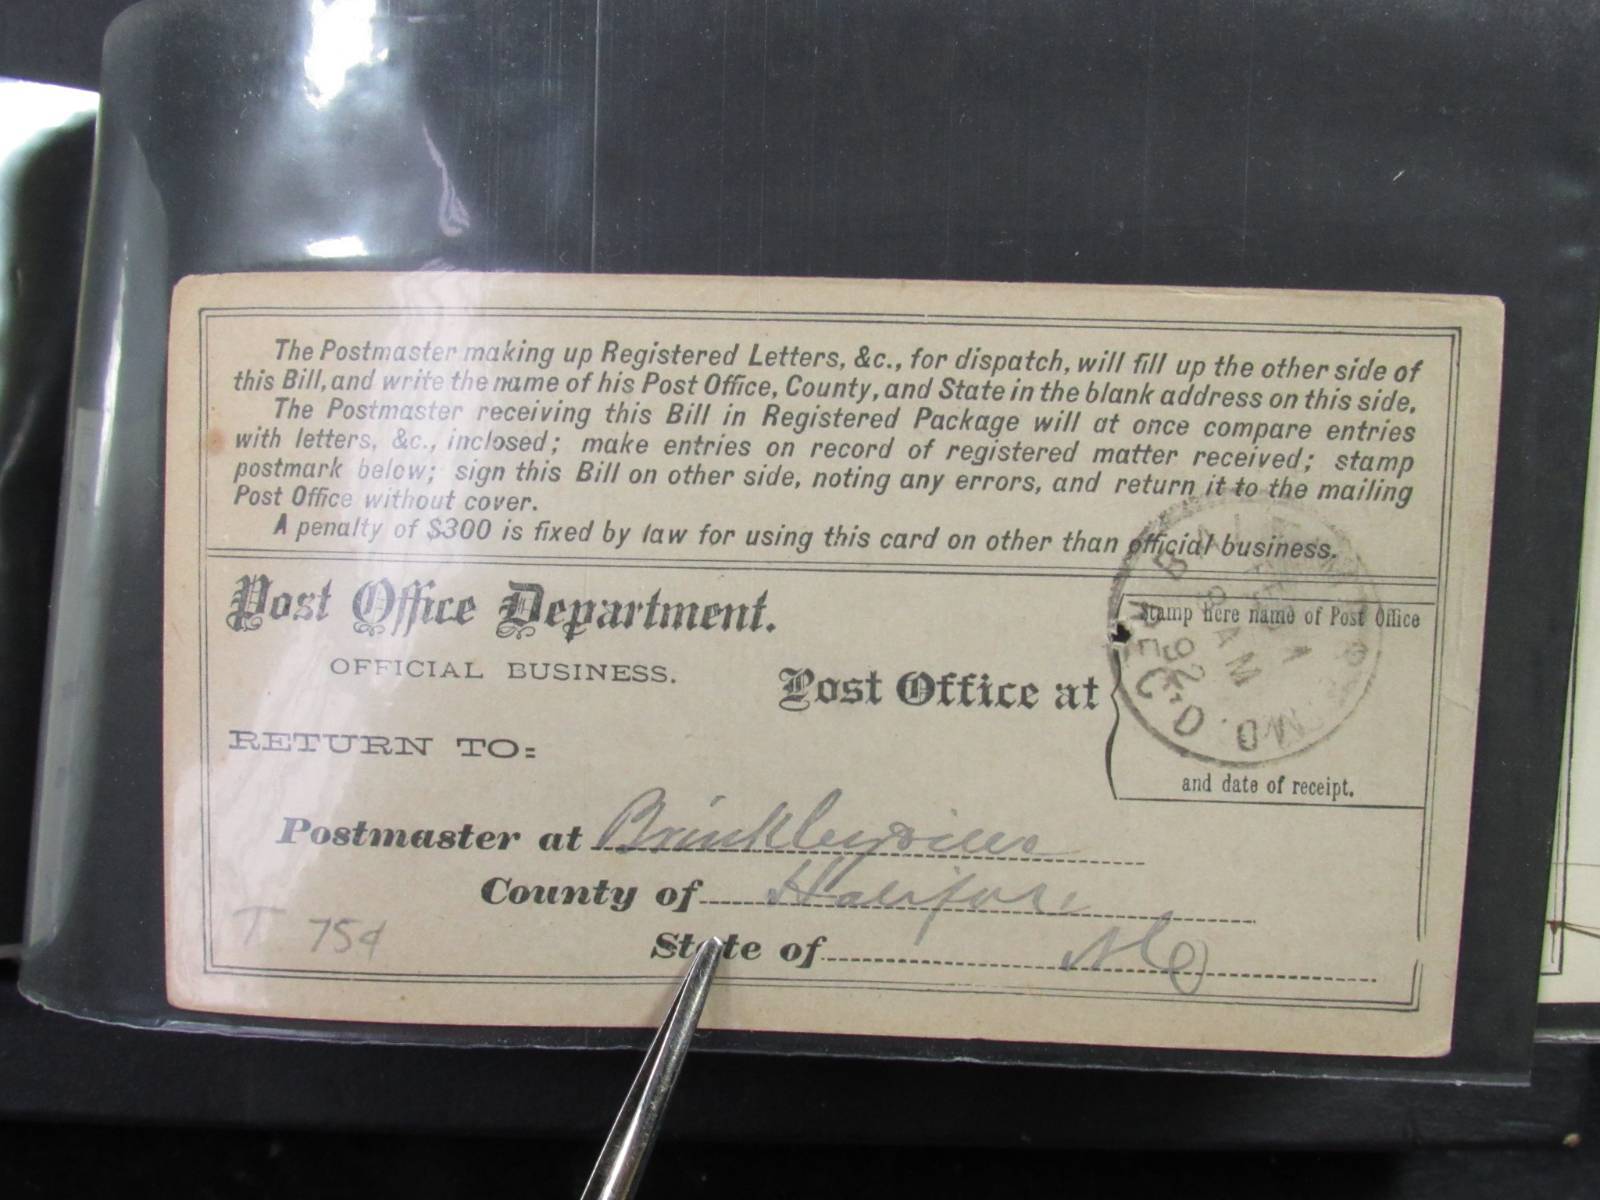 The Postmaster making up Registered Letters, &c., for dispatch, will fill up the other side of
this Bill, and write the name of his Post Office, County, and State in the blank address on this side.
The Postmaster receiving this Bill in Registered Package will at once compare entries
with letters, &c., inclosed; make entries on record of registered matter received; stamp
postmark below; sign this Bill on other side, noting any errors, and return it to the mailing
Post Office without cover.
A penalty of $300 is fixed by law for using this card on other than official business.
Post Office Department.
OFFICIAL BUSINESS.
Stamp here name of Post Office
Post Office at
REC'D. MD.
AM
92
and date of receipt.
RETURN TO:
Postmaster at Brinkleyville
County of Halifax
State of NC
T 75¢